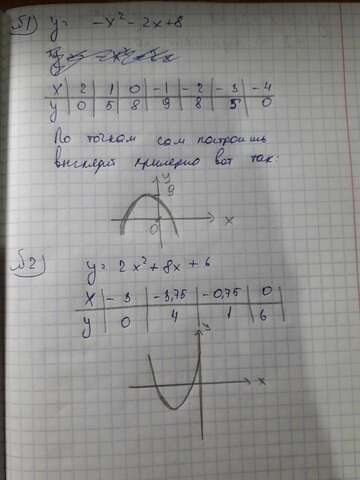 №1) y = -x² - 2x + 8
x 2 1 0 -1 -2 -3 -4
y 0 5 8 9 8 5 0
По точкам сам построишь
выглядит примерно вот так:
y
9
0 x
№2) y = 2x² + 8x + 6
x -3 -3,75 -0,75 0
y 0 4 1 6
y
x